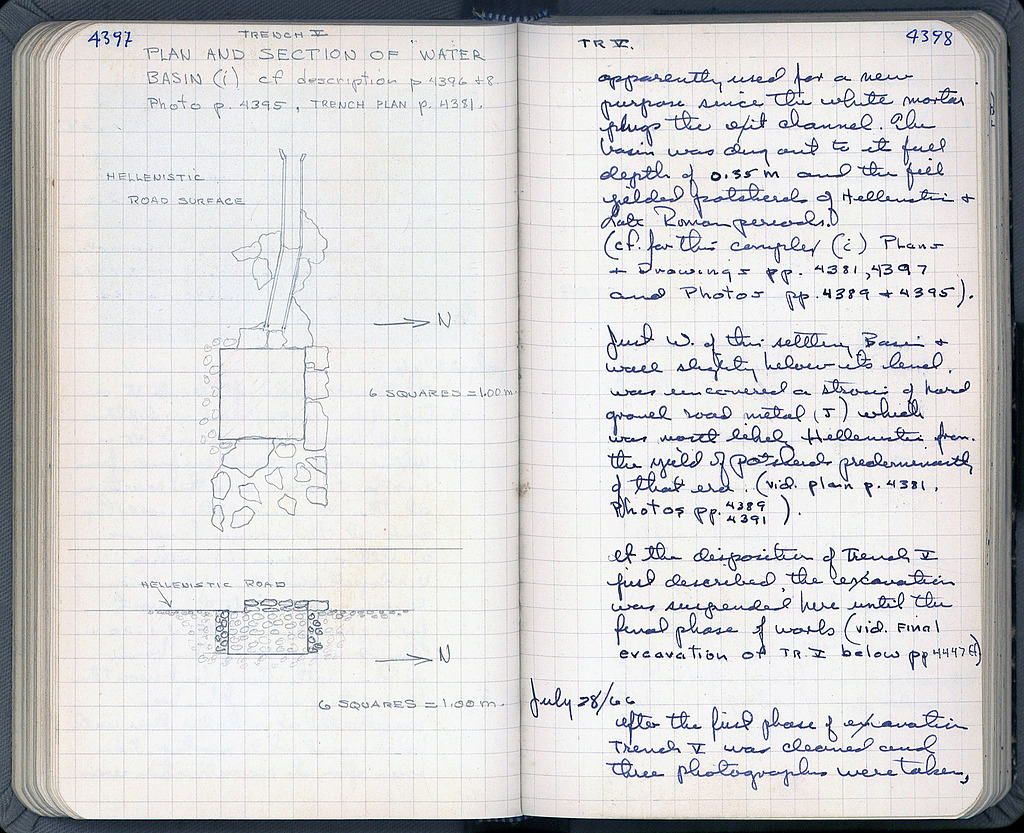 4397
TRENCH V
PLAN AND SECTION OF WATER
BASIN (i) cf description p 4396 + 8.
Photo p. 4395, TRENCH PLAN p. 4381.
HELLENISTIC
ROAD SURFACE
N
6 SQUARES = 1.00 m.
HELLENISTIC ROAD
N
6 SQUARES = 1.00 m.
4398
TR V.
apparently used for a new
purpose since the white mortar
plugs the exit channel. The
basin was dug out to its full
depth of 0.35 m and the fill
yielded potsherds of Hellenistic +
Late Roman periods.
(cf. for this complex (i) Plans
+ Drawings pp. 4381, 4397
and Photos pp. 4389 + 4395).
Just W. of this settling Basin +
well slightly below its level,
was uncovered a strosis of hard
gravel road metal (J) which
was most likely Hellenistic from
the yield of potsherds predominantly
of that era. (vid. plan p. 4381,
Photos pp. 4389
4391).
At the disposition of Trench V
just described the excavation
was suspended here until the
final phase of works (vid. Final
excavation of TR. V below pp 4447 ff)
July 28/66
After the first phase of excavation
Trench V was cleaned and
three photographs were taken,